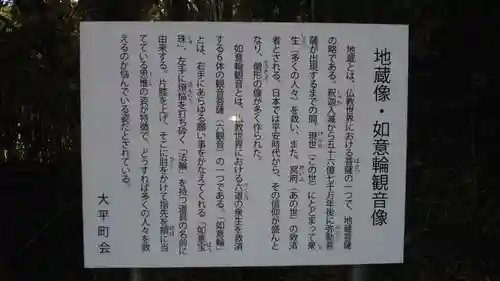 地蔵像・如意輪観音像
地蔵とは、仏教世界における菩薩の一つで、地蔵菩薩
の略である。釈迦入滅から五十六億七千万年後に弥勒菩
薩が出現するまでの間、現世（この世）にとどまって衆
生（多くの人々）を救い、また、冥府（あの世）の救済
者とされる。日本では平安時代から、その信仰が盛んと
なり、僧形の像が多く作られた。
如意輪観音とは、仏教世界における六道の衆生を救済
する６体の観音菩薩（六観音）の一つである。「如意輪」
とは、右手にあらゆる願い事をかなえてくれる「如意宝
珠」、左手に煩悩を打ち砕く、「法輪」を持つ道具の名前に
由来する。片膝を上げ、そこに肘をかけて指先を頬に当
てている思惟の姿が特徴で、どうすれば多くの人々を救
えるのか悩んでいる姿だとされている。
大平町会